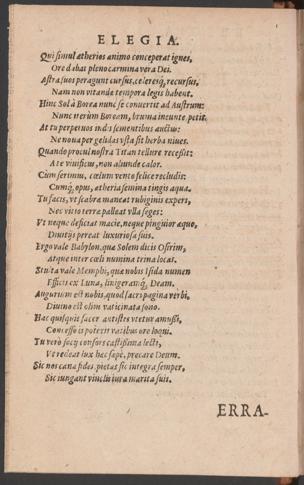 ELEGIA.
Qui simul ætherios animo conceperat ignes,
Ore dabat pleno carmina vera Dei.
Astra suos peragunt cursus, celeresq; recursus,
Nam non vitandæ tempora legis habent.
Hinc Sol à Borea nunc se conuertit ad Austrum:
Nunc iterum Boream, bruma ineunte petit.
At tu perpetuos indis sementibus auctus:
Ne noua per gelidas vsta sit herba niues.
Quando procul nostra Titan tellure recessit:
A te viuificus, non aliunde calor.
Cum serimus, cœlum vento felice recludis:
Cumq; opus, ætheria semina tingis aqua.
Tu facis, vt scabra maneat rubiginis expers,
Nec vitio terræ palleat vlla seges:
Vt neque deficiat macie, neque pinguior æquo,
Diuitijs pereat luxuriosa suis.
Ergo vale Babylon, quæ Solem dicis Osirim,
Atque inter cœli numina prima locas.
Stulta vale Memphi, quæ nobis Isida numen
Efficis ex Luna, linigeramq; Deam.
Augurium est nobis, quod sacra pagina verbi,
Diuino est olim vaticinata sono.
Hac quisquis sacer antistes vtetur amussi,
Concesso is poterit vatibus ore loqui.
Tu verò socÿ consors castissima lecti,
Vt redeat lux hæc sæpè, precare Deum.
Sic nos cana fides, pietas sic integra semper,
Sic iungant vinclis iura marita suis.
ERRA-